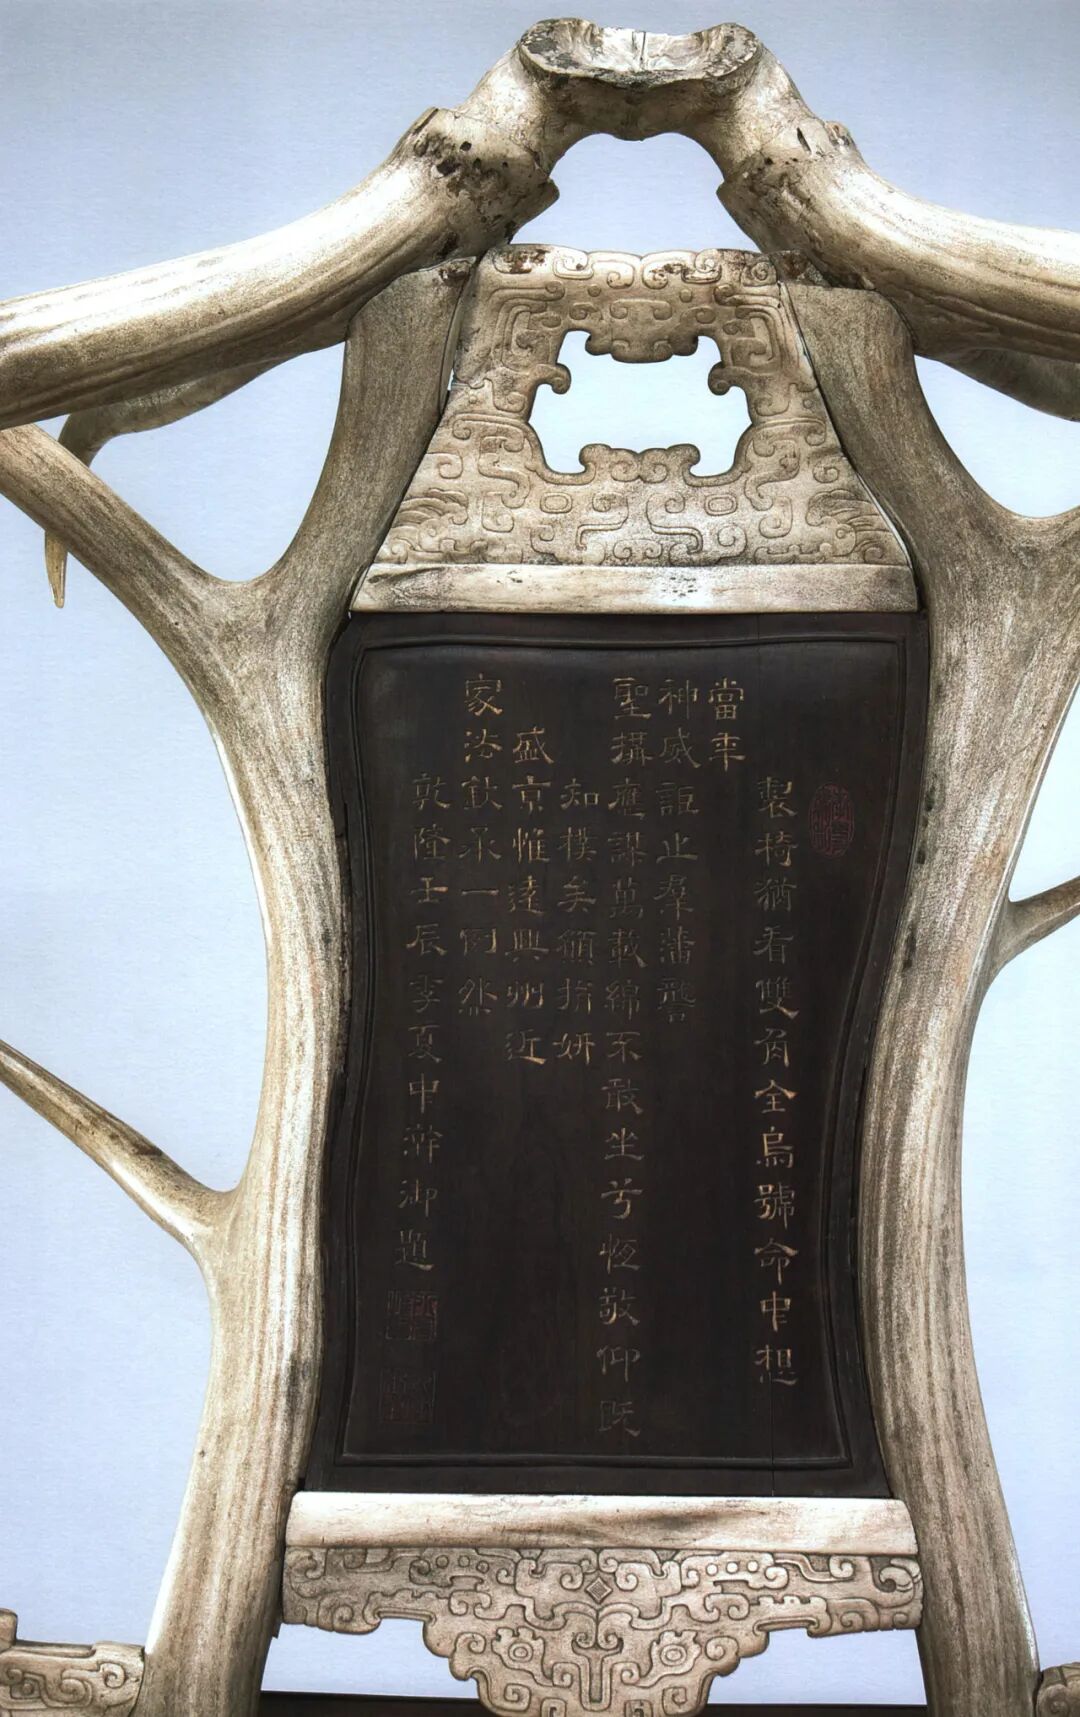 製椅猶看雙角全烏號命中想
當年
神威詎止羣藩讋
聖攝應謀萬載綿不敢坐兮恆敬仰既
知樸矣願指妍
盛京惟遠興州近
家法欽承一例然
乾隆壬辰季夏中澣御題